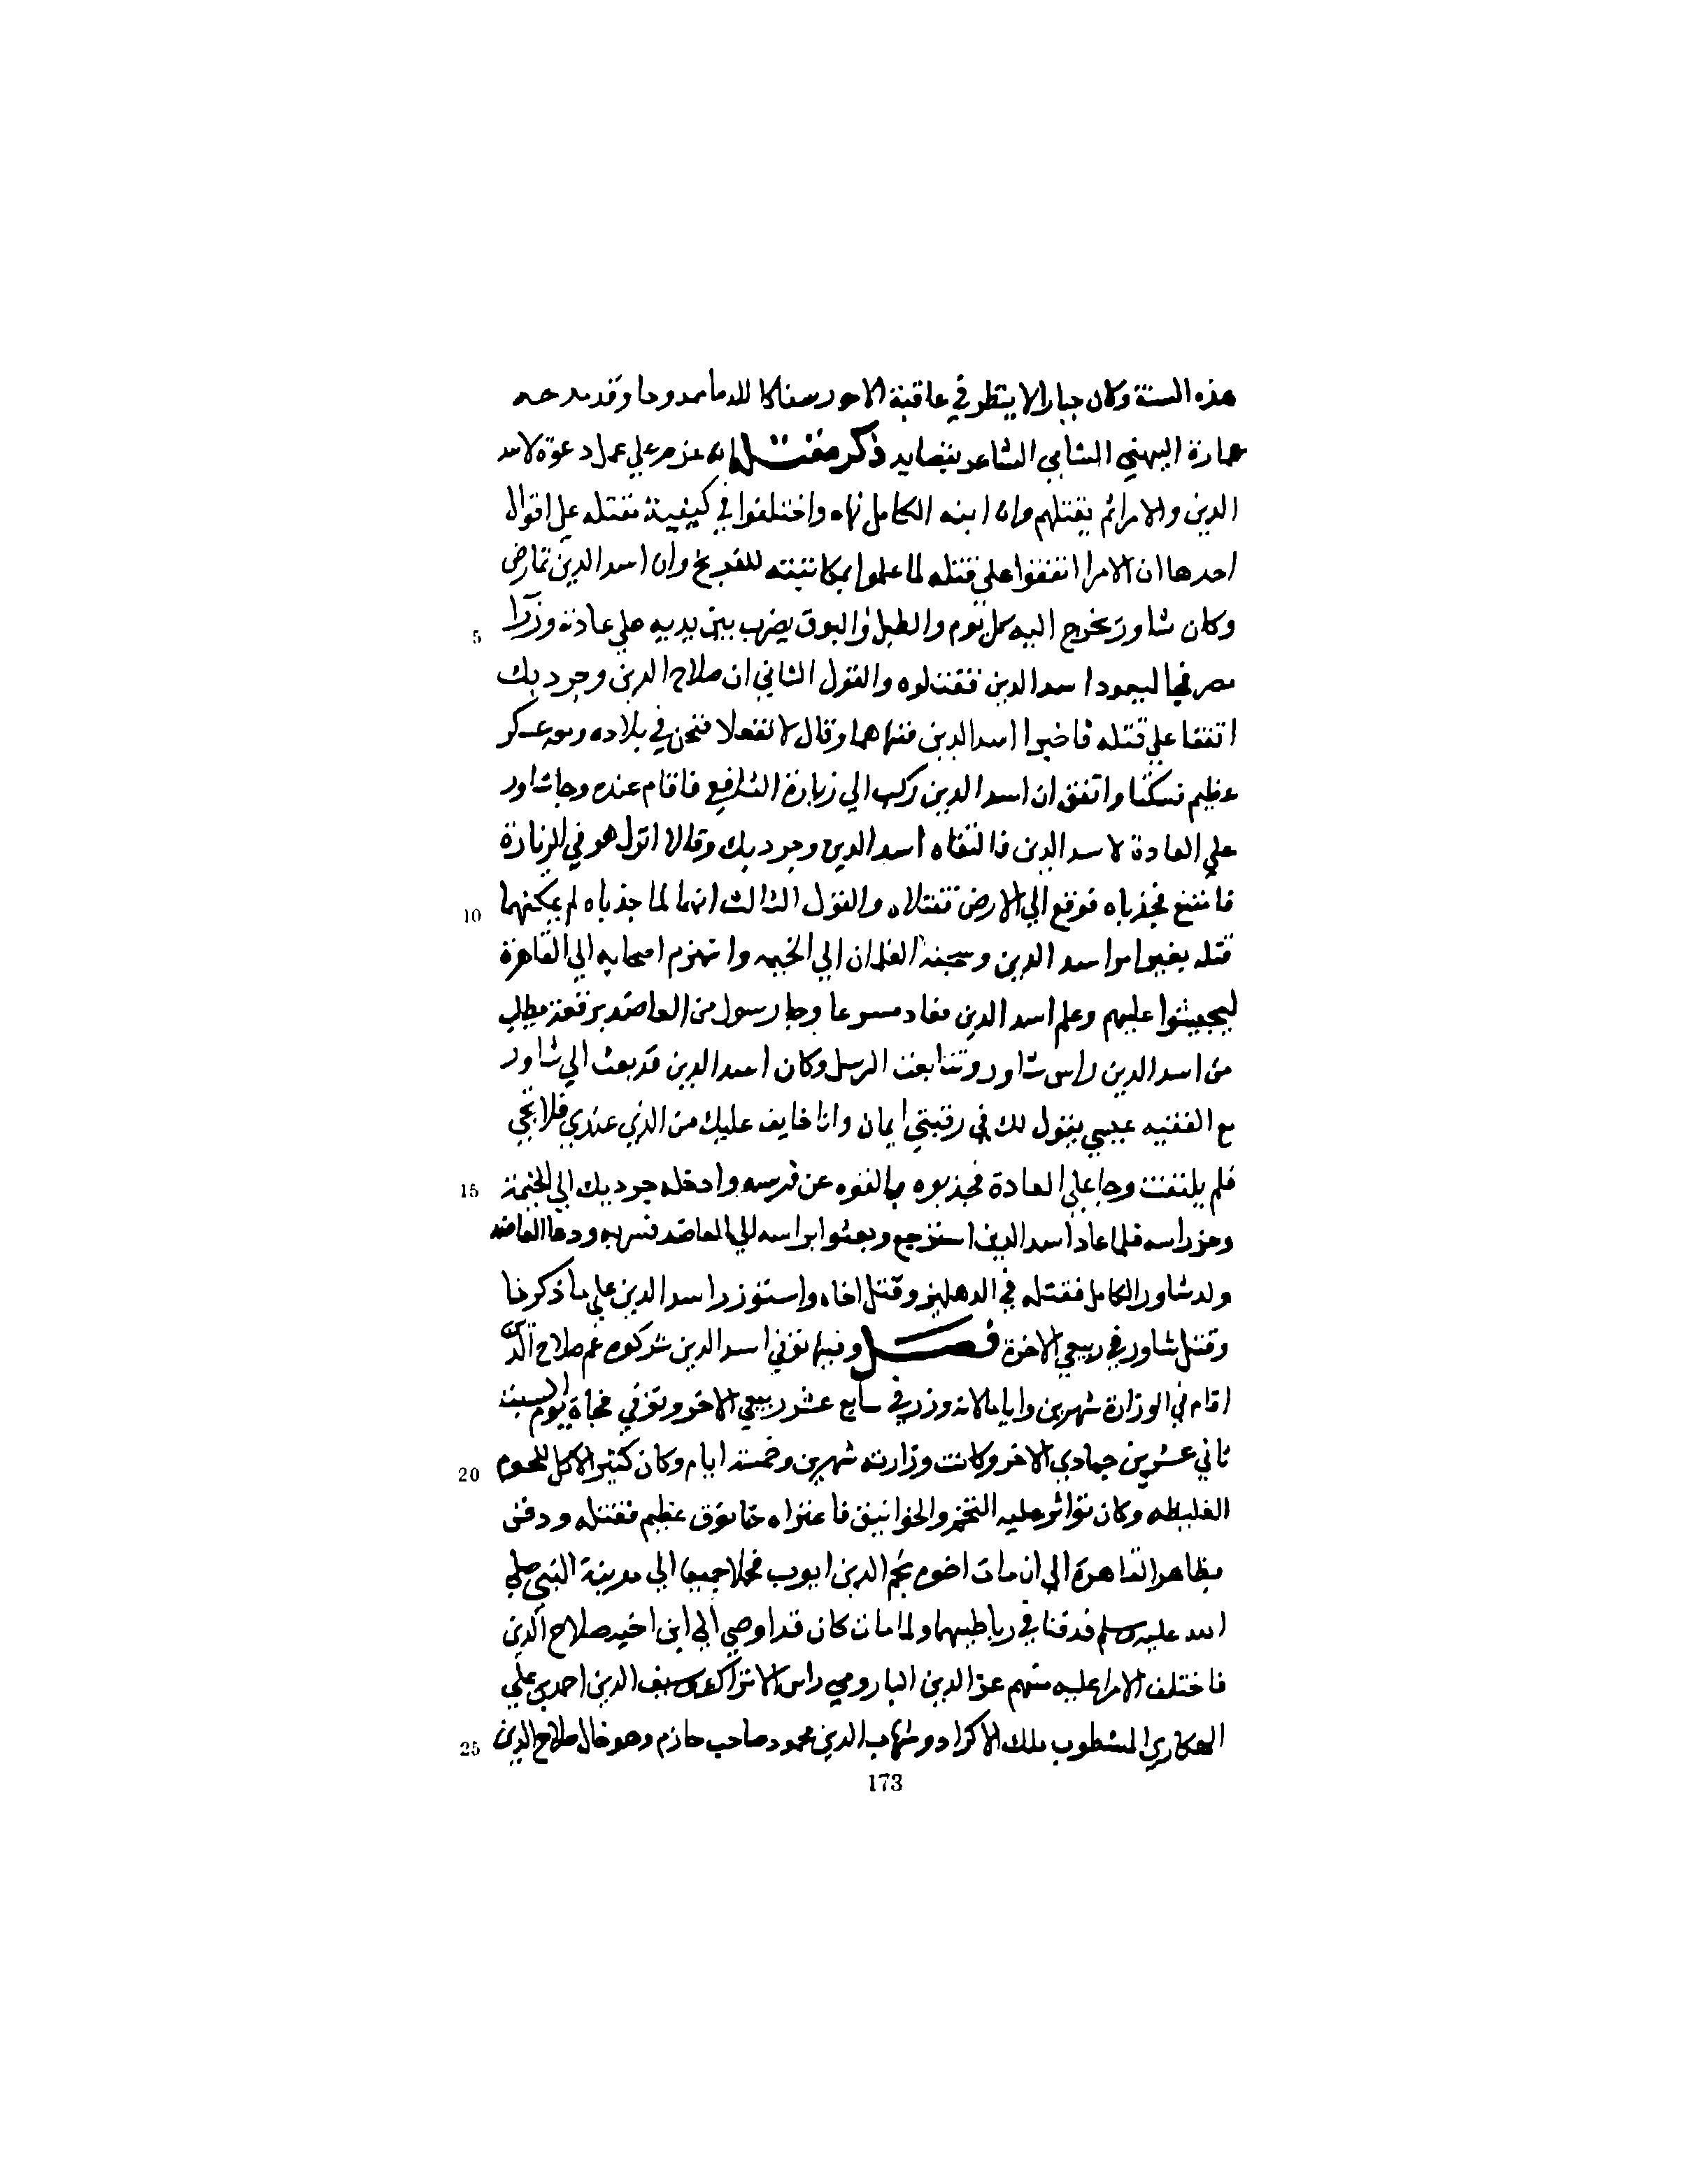 هذه السنة وكان جبارا لا ينظر في عاقبة الامور سفاكا للدما ممدوحا وقد مدحه
عمارة اليمني الشامي الشاعر بقصايد ذكر مقتله انه عزم علي عمل دعوة لاسد
الدين والامرا ثم يقتلهم وان ابنه الكامل نهاه واختلفوا في كيفية مقتله علي اقوال
احدها ان الامرا اتفقوا علي قتله لما علموا بمكاتبته للفرنج وان اسد الدين تمارض
وكان شاور يخرج اليه كل يوم والطبل والبوق يضرب بين يديه علي عادة وزرا
5
مصر فجا ليعود اسد الدين فقتلوه والقول الثاني ان صلاح الدين وجرديك
اتفقا علي قتله فاخبرا اسد الدين فنهاهما وقال لا تفعلا فنحن في بلاده ومعه عسكر
عظيم فسكتا واتفق ان اسد الدين ركب الي زيارة الشافعي فاقام عنده وجا شاور
علي العادة لاسد الدين فالتقاه اسد الدين وجرديك وقالا انزل هو في الزيارة
فامتنع فجذباه فوقع الي الارض فقتلاه والقول الثالث انهما لما جذباه لم يمكنهما
10
قتله بغير امر اسد الدين وسحبه الغلمان الي الخيمه وانهزم اصحابه الي القاهرة
ليجيشوا عليهم وعلم اسد الدين فعاد مسرعا وجا رسول من العاضد برقعة يطلب
من اسد الدين راس شاور وتتابعت الرسل وكان اسد الدين قد بعث الي شاور
مع الفقيه عيسي يقول لك في رقبتي ايمان وانا خايف عليك من الذي عندي فلا تجي
فلم يلتفت وجا علي العادة فجذبوه والقوه عن فرسه وادخله جرديك الي الخيمة
15
وحز راسه فلما عاد اسد الدين استرجع وبعثوا براسه الي العاضد فسر به ودعا العاضد
ولد شاور الكامل فقتله في الدهليز وقتل اخاه واستوزر اسد الدين علي ما ذكرنا
وقتل شاور في ربيع الاخرة فصل وفيها توفي اسد الدين شركوه عم صلاح الدين
اقام في الوزارة شهرين واياما لانه وزر في سابع عشر ربيع الاخر وتوفي فجاة يوم السبت
ثاني عشرين جمادي الاخر وكانت وزارته شهرين وخمسة ايام وكان كثير الاكل للحوم
20
الغليظه وكان تواتر عليه التخم والخوانيق فاعتراه خانوق عظيم فقتله ودفن
بظاهر القاهرة الي ان مات اخوه نجم الدين ايوب فحملا جميعا الي مدينة النبي صلي
الله عليه وسلم فدفنا في رباطيهما ولما مات كان قد اوصي الي ابن اخيه صلاح الدين
فاختلف الامرا عليه منهم عز الدين الياروقي راس الاتراك وسيف الدين احمد بن علي
الهكاري المشطوب ملك الاكراد وشهاب الدين محمود صاحب حازم وهو خال صلاح الدين
25
173